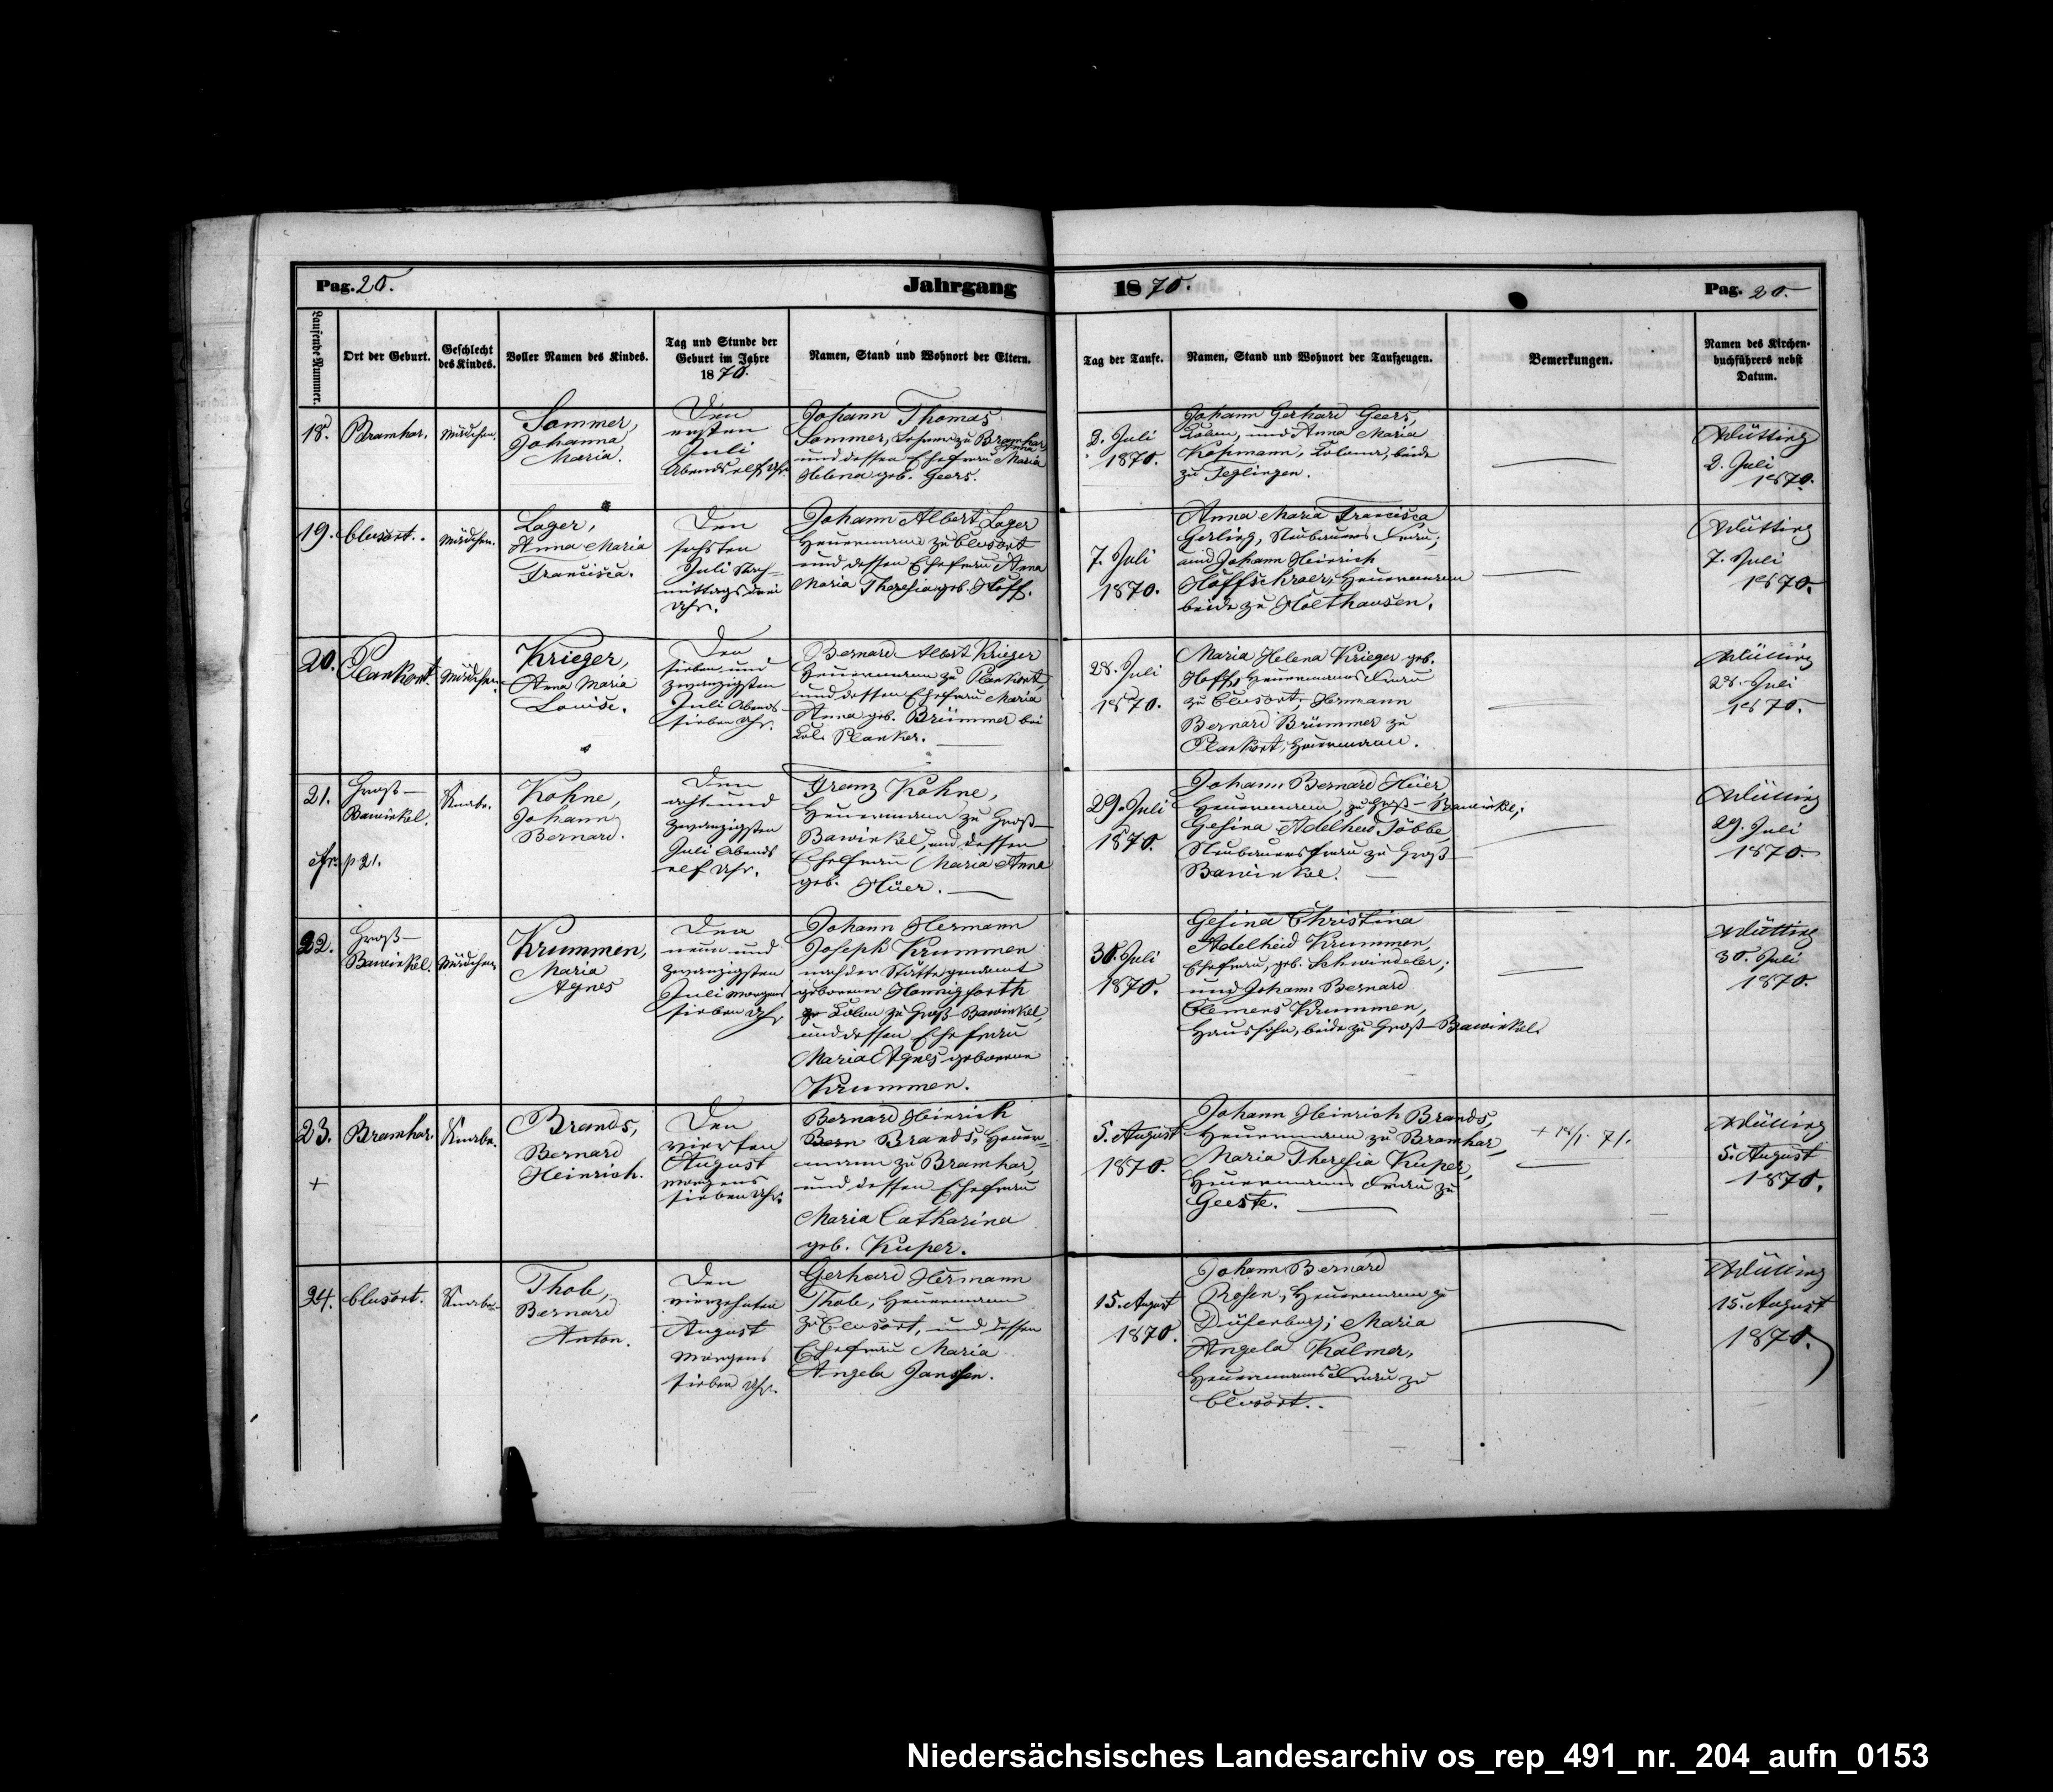 Pag. 20. Jahrgang 1870. Pag. 20.
Laufende Nummer.
Ort der Geburt.
Geschlecht
des Kindes.
Voller Namen des Kindes.
Tag und Stunde der
Geburt im Jahre
1870.
Namen, Stand und Wohnort der Eltern.
Tag der Taufe.
Namen, Stand und Wohnort der Taufzeugen.
Bemerkungen.
Namen des Kirchen-
buchführers nebst
Datum.
18.
Bramhar.
Mädchen.
Sommer,
Johanna
Maria.
Den
ersten
Juli
Abends elf Uhr.
Johann Thomas
Sommer, zu Bramhar
und dessen Ehefrau Anna Maria
Helena geb. Geers.
2. Juli
1870.
Johann Gerhard Geers,
Kolon, und Anna Maria
Kolona, beide
zu Teglingen.
2. Juli
1870.
19.
Clusort.
Mädchen.
Lager,
Anna Maria
Francisca.
Den
sechsten
Juli Nach-
mittags drei
Uhr.
Johann Albert Lager
Heuermann zu Clusort
und dessen Ehefrau Anna
Maria Theresia geb. Hoff.
7. Juli
1870.
Anna Maria Francisca
Gerling, Neubauers Frau;
und Johann Heinrich
Hoffschroer, Heuermann
beide zu Holthausen.
7. Juli
1870.
20.
Plankort.
Mädchen.
Krieger,
Anna Maria
Louise.
Den
sieben und
zwanzigsten
Juli Abends
sieben Uhr.
Bernard Albert Krieger
Heuermann zu Plankort,
und dessen Ehefrau Maria
Anna geb. Brümmer bei
Kol. Planker.
28. Juli
1870.
Maria Helena Krieger geb.
Hoff, Heuermanns Frau
zu Clusort; Hermann
Bernard Brümmer zu
Plankort, Heuermann.
28. Juli
1870.
21.
cfr. p 21.
Groß-
Bawinkel.
Knabe.
Kohne,
Johann
Bernard.
Den
acht und
zwanzigsten
Juli Abends
elf Uhr.
Franz Kohne,
Heuermann zu Groß-
Bawinkel, und dessen
Ehefrau Maria Anna
geb. Hüer.
29. Juli
1870.
Johann Bernard Hüer,
Heuermann zu Groß-Bawinkel;
Gesina Adelheid Többe,
Neubauers Frau zu Groß-
Bawinkel.
29. Juli
1870.
22.
Groß-
Bawinkel.
Mädchen
Krummen,
Maria
Agnes
Den
neun und
zwanzigsten
Juli Morgens
sieben Uhr
Johann Hermann
Joseph Krummen
nach der Stätte genannt
geborener
Kolon zu Groß-Bawinkel,
und dessen Ehefrau
Maria Agnes geborene
Krummen.
30. Juli
1870.
Gesina Christina
Adelheid Krummen,
Ehefrau, geb. Schwindeler;
und Johann Bernard
Clemens Krummen,
Haussohn, beide zu Groß-Bawinkel.
30. Juli
1870.
23.
+
Bramhar.
Knabe.
Brands,
Bernard
Heinrich.
Den
vierten
August
morgens
sieben Uhr.
Bernard Heinrich
Bern Brands, Heuer-
mann zu Bramhar,
und dessen Ehefrau
Maria Catharina
geb. Kuper.
5. August
1870.
Johann Heinrich Brands,
Heuermann zu Bramhar,
Maria Theresia Kuper,
Heuermanns Frau zu
Geeste.
+ 18/1. 71.
5. August
1870.
24.
Clusort.
Knabe.
Thole,
Bernard
Anton.
Den
vierzehnten
August
Morgens
sieben Uhr.
Gerhard Hermann
Thole, Heuermann
zu Clusort, und dessen
Ehefrau Maria
Angela Janssen.
15. August
1870.
Johann Bernard
Rosen, Heuermann zu
Düsenburg; Maria
Angela Kalmer,
Heuermanns Frau zu
Clusort.
15. August
1870.
Niedersächsisches Landesarchiv os_rep_491_nr._204_aufn_0153